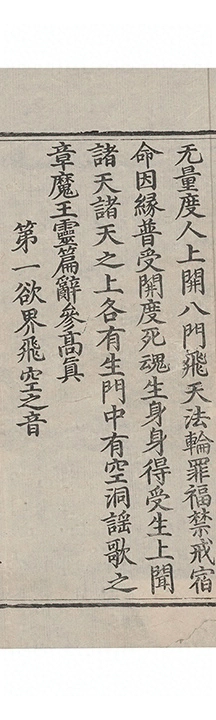 无量度人上開八門飛天法輪罪福禁戒宿
命因緣普受開度死魂生身身得受生上聞
諸天諸天之上各有生門中有空洞謡歌之
章魔王靈篇辭參髙真
第一欲界飛空之音